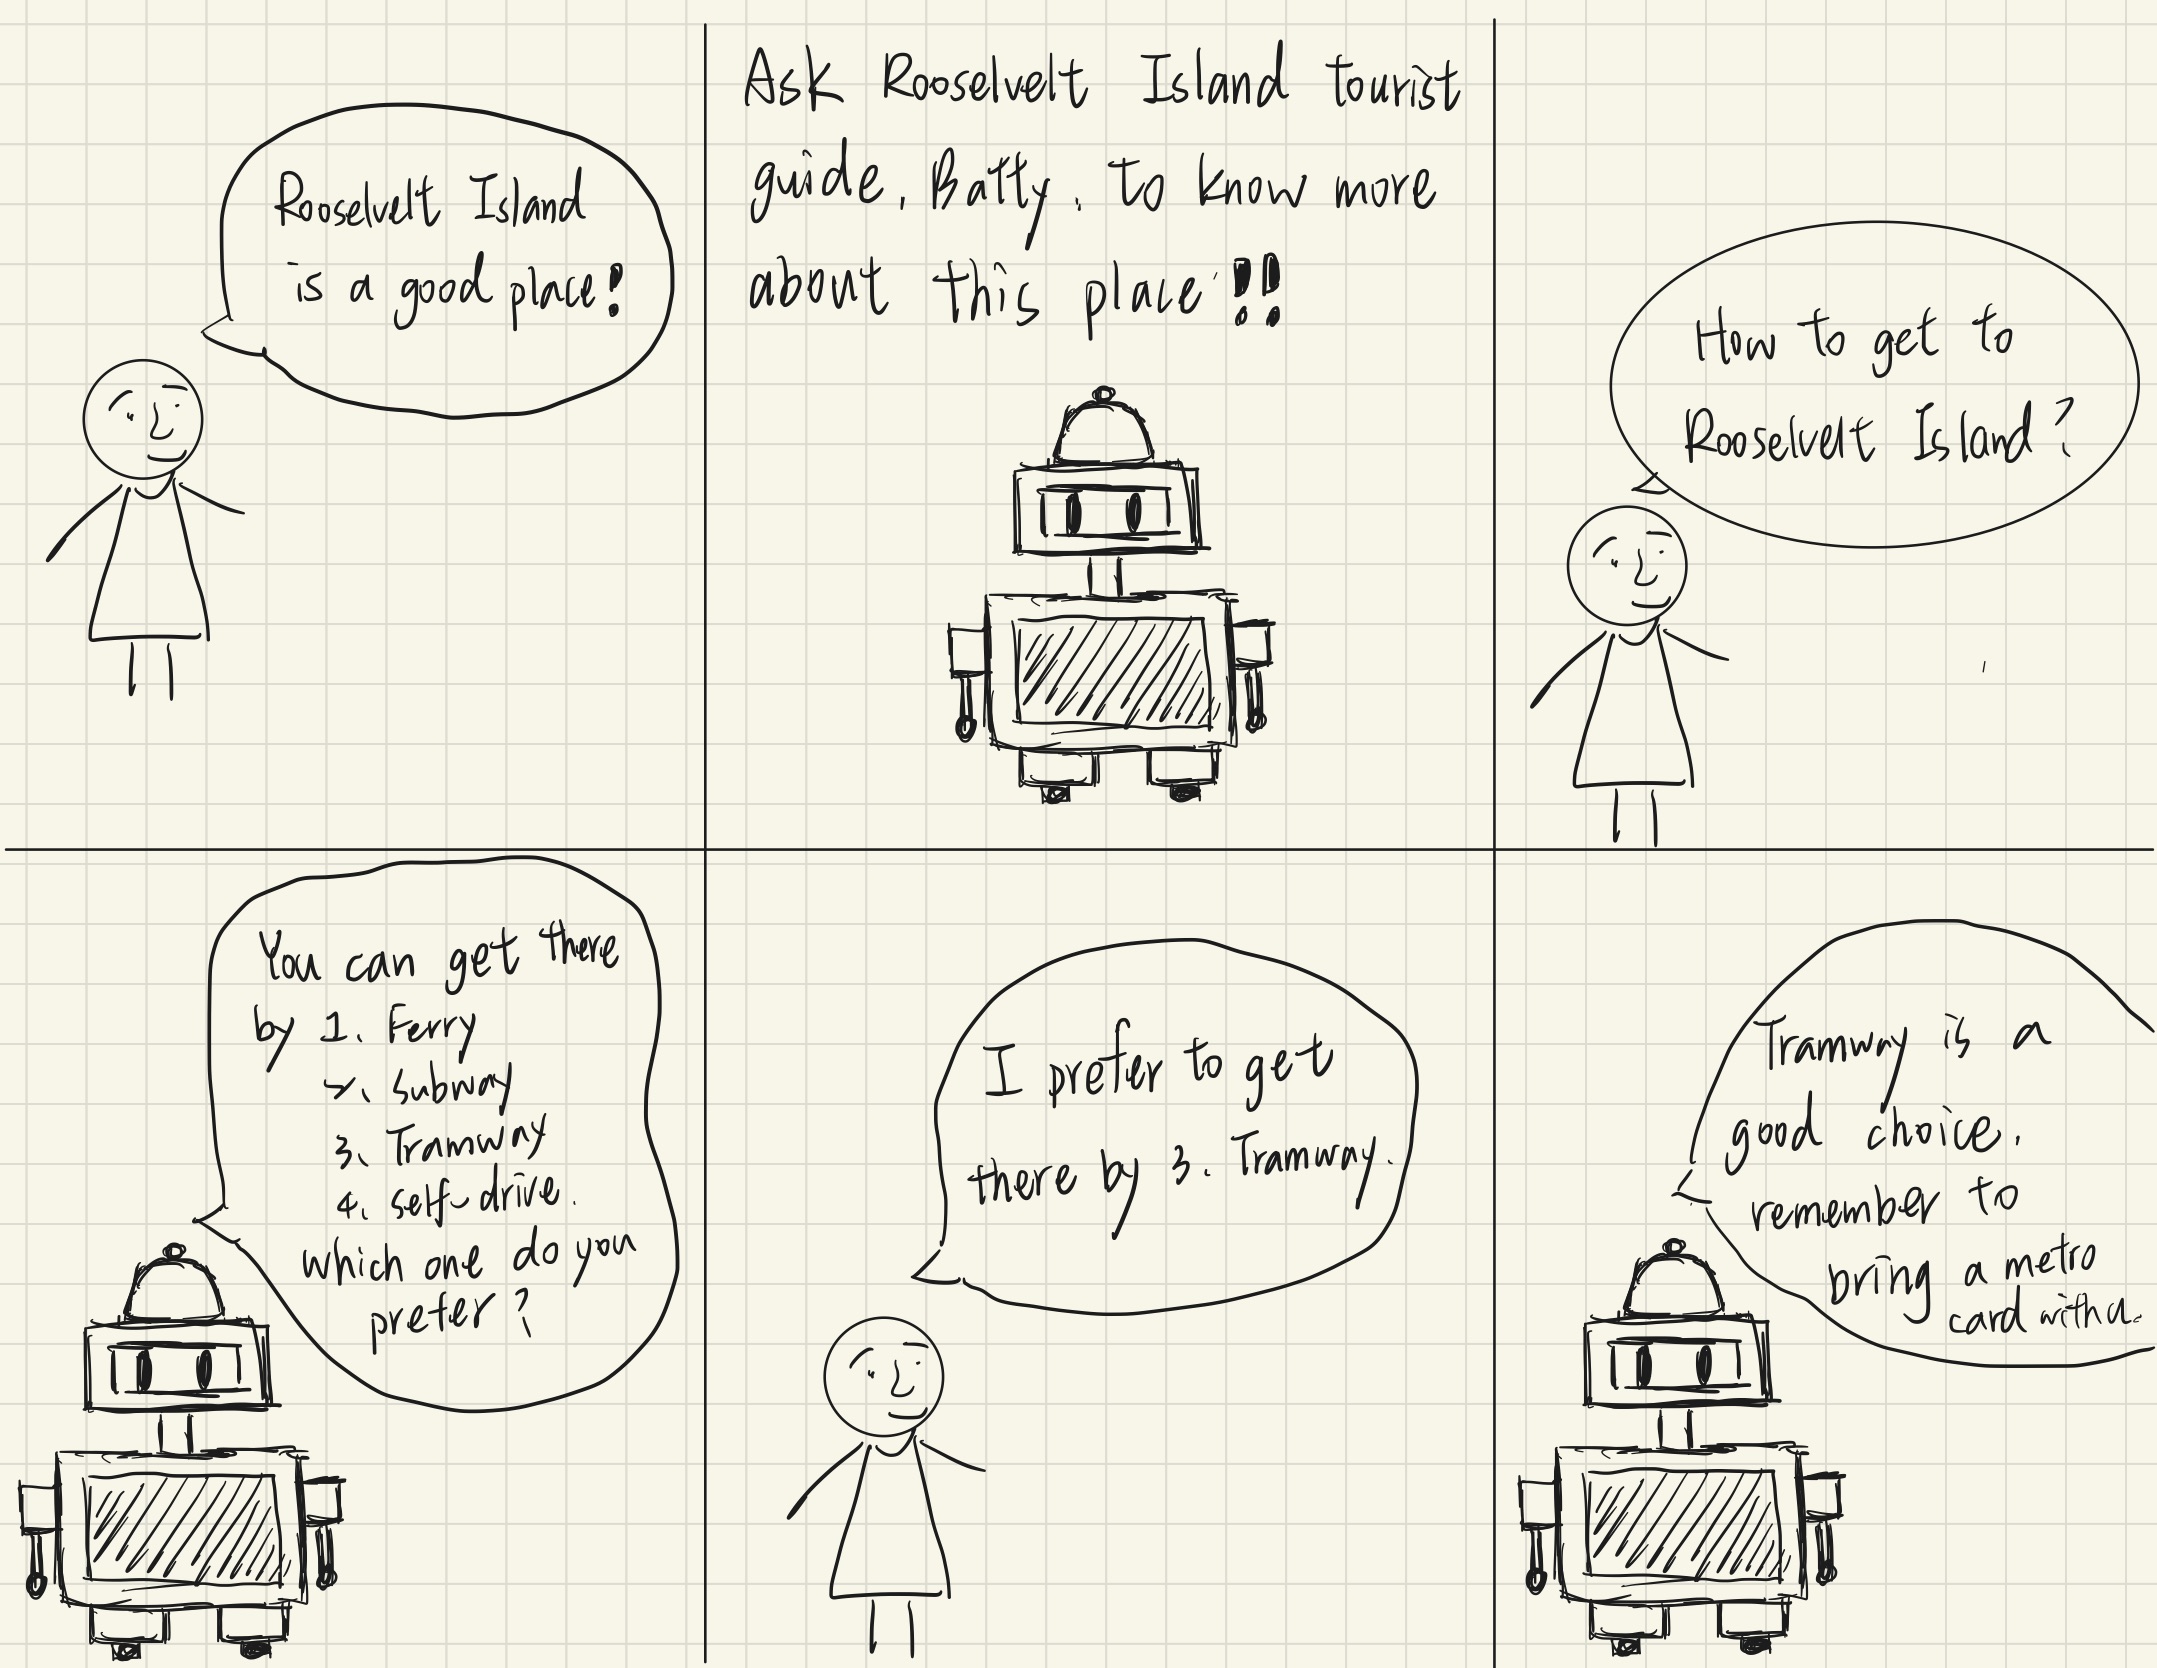 Rooselvelt Island
is a good place!
Ask Rooselvelt Island tourist
guide, Batty, to know more
about this place!!
How to get to
Rooselvelt Island?
You can get there
by 1. Ferry
2. subway
3. Tramway
4. self-drive.
which one do you
prefer?
I prefer to get
there by 3. Tramway.
Tramway is a
good choice.
remember to
bring a metro
card with